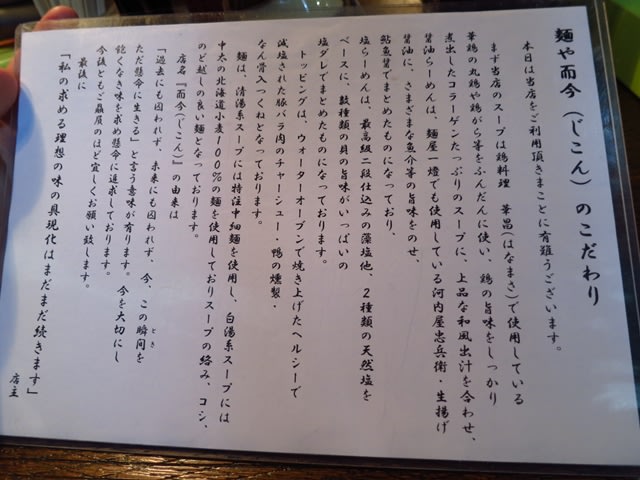 麺や而今(じこん)のこだわり
本日は当店をご利用頂きまことに有難うございます。
まず当店のスープは鶏料理 華昌(はなまさ)で使用している
華鶏の丸鶏や鶏がら等をふんだんに使い、鶏の旨味をしっかり
煮出したコラーゲンたっぷりのスープに、上品な和風出汁を合わせ、
醤油らーめんは、麺屋一燈でも使用している河内屋忠兵衛・生揚げ
醤油に、さまざまな魚介等の旨味をのせ、
鮎魚醤でまとめたものになっており、
塩らーめんは、最高級二段仕込みの藻塩他、2種類の天然塩を
ベースに、数種類の貝の旨味がいっぱいの
塩ダレでまとめたものになっております。
トッピングは、ウォーターオーブンで焼き上げたヘルシーで
減塩された豚バラ肉のチャーシュー・鴨の燻製・
なん骨入つくねとなっております。
麺は、清湯系スープには特注中細麺を使用し、白湯系スープには
中太の北海道小麦100%の麺を使用しておりスープの絡み、コシ、
のど越しの良い麺となっております。
店名『而今(じこん)』の由来は
「過去にも囚われず、未来にも囚われず、今、この瞬間(とき)を
ただ懸命に生きる」と言う意味が有ります。今を大切にし
飽くなき味を求め懸命に追求しております。
今後ともご贔屓のほど宜しくお願い致します。
最後に
「私の求める理想の味の具現化はまだまだ続きます」
店主